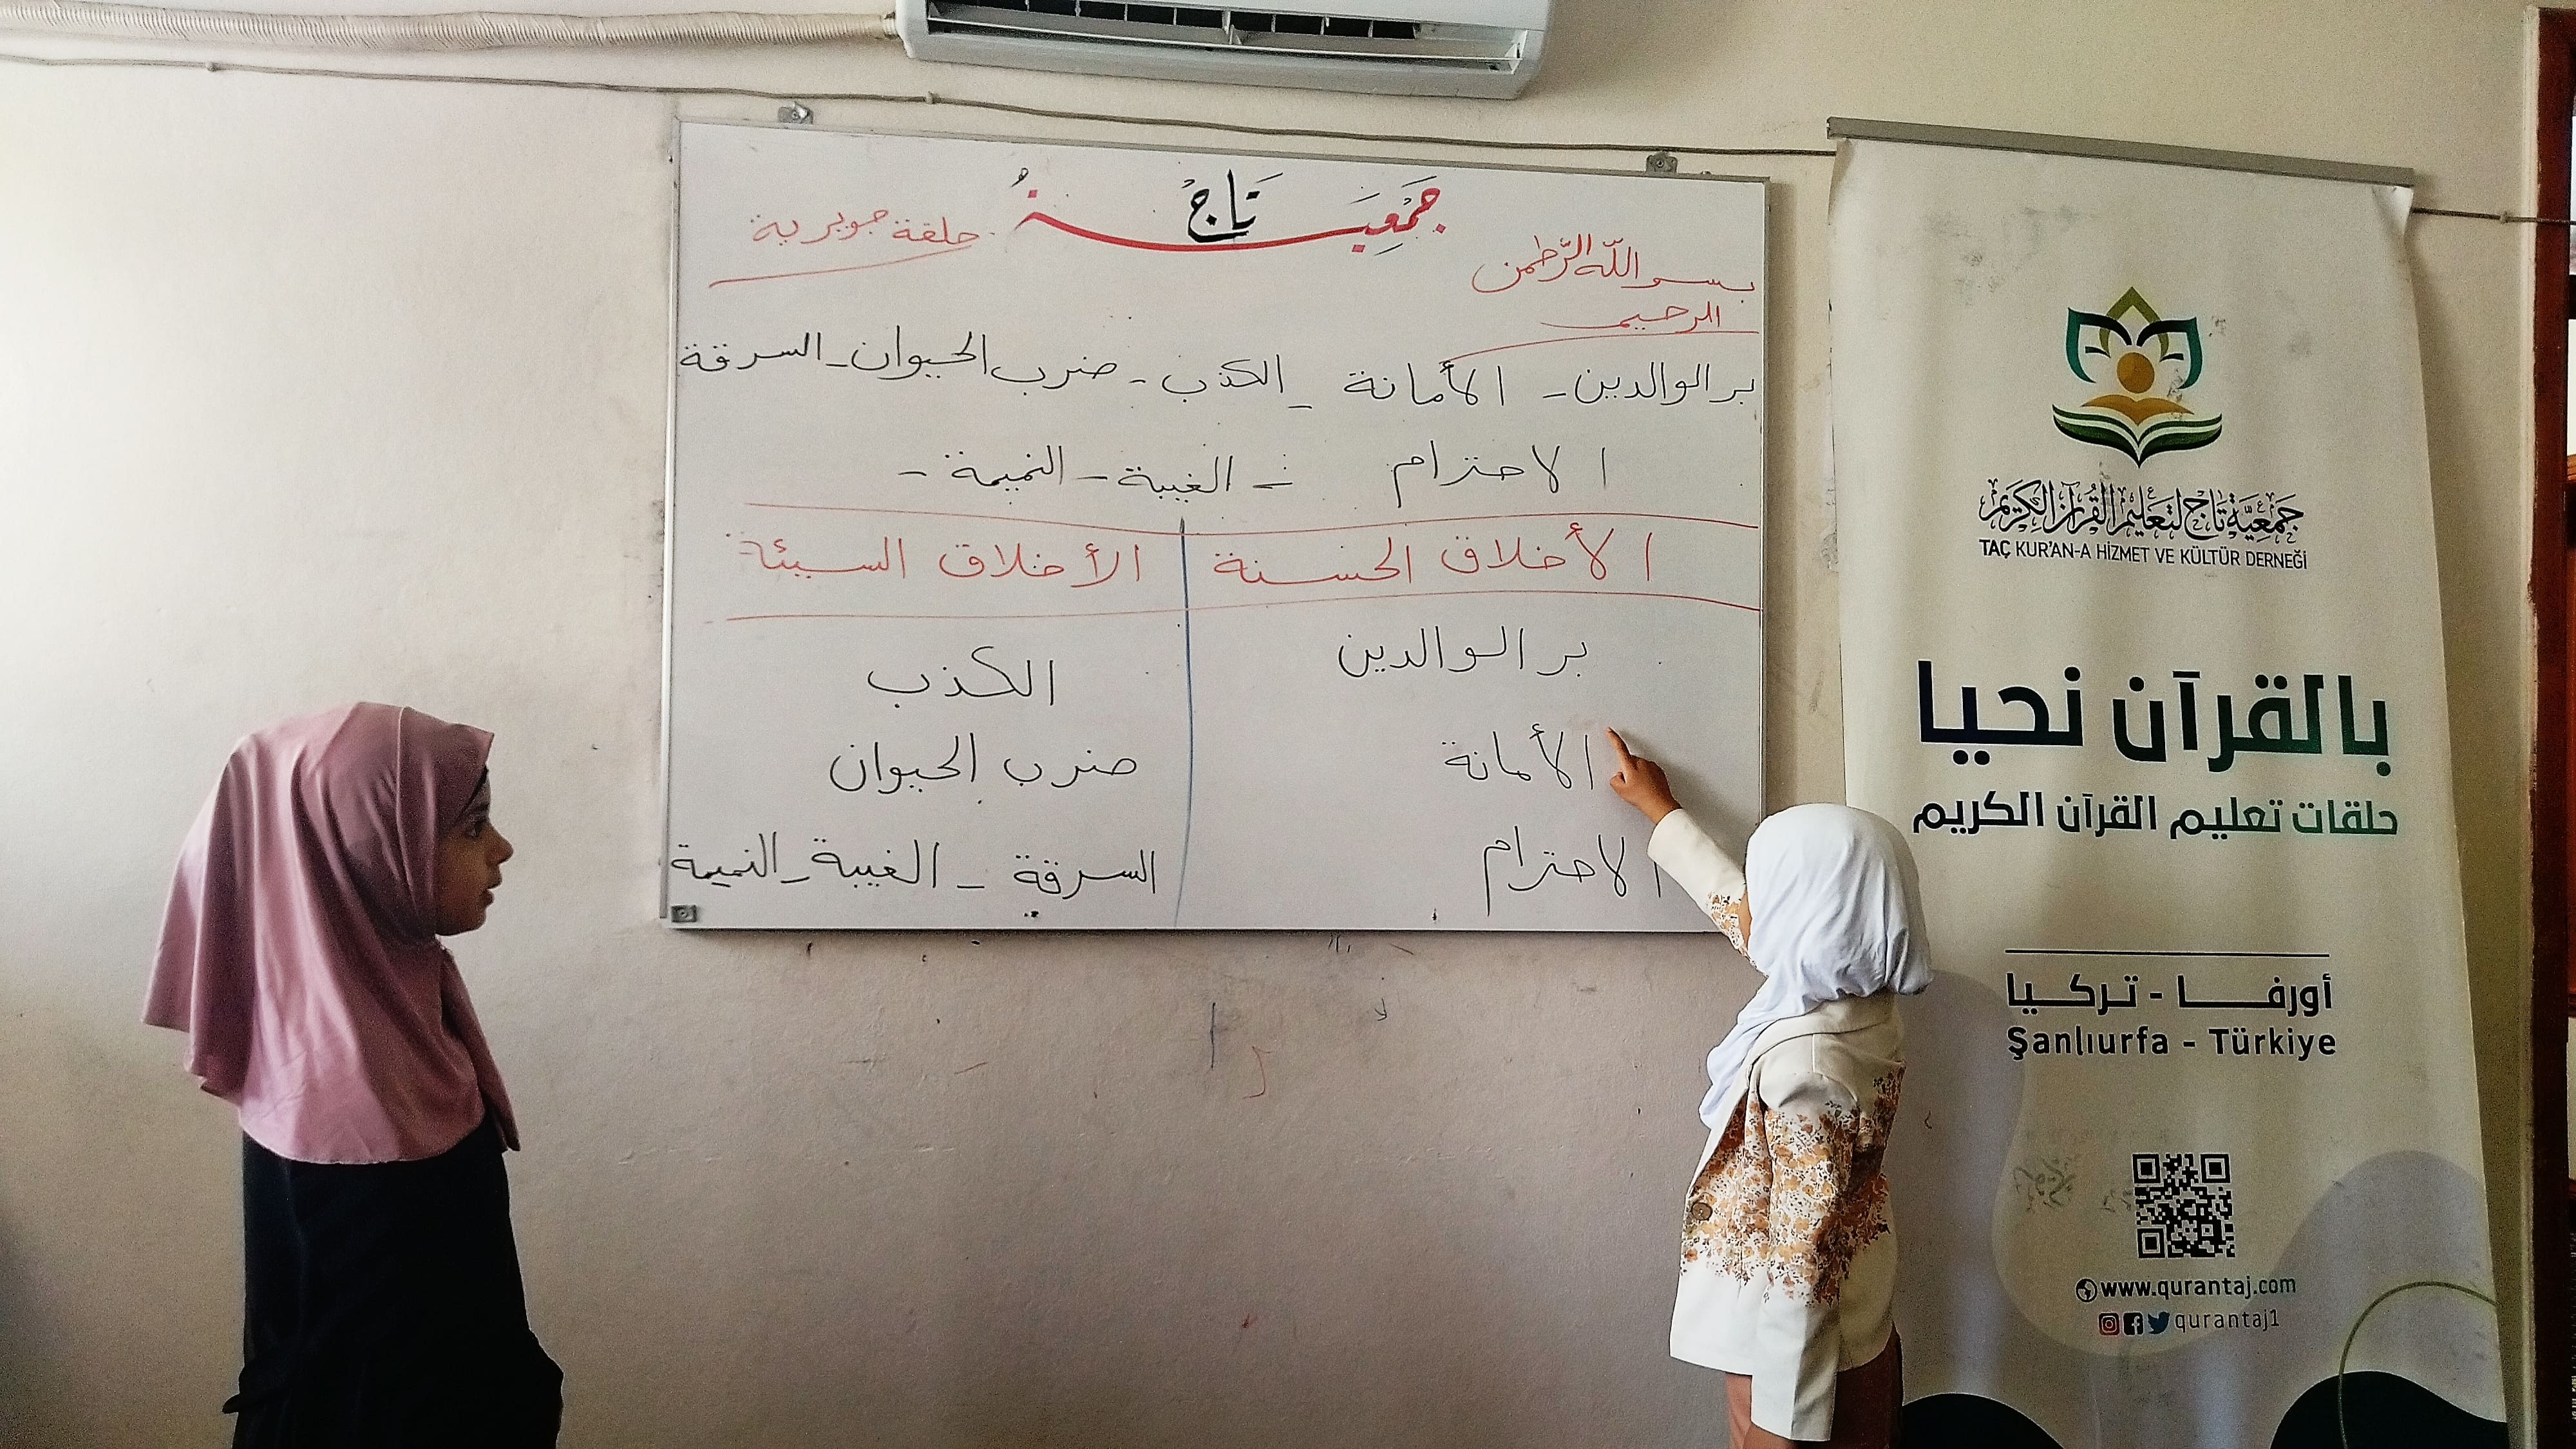 جَمْعِيَـــةُ تَاجْ
حلقة جويرية
بسم اللّه الرّحمن
الرحيم
بر الوالدين - الأمانة - الكذب - ضرب الحيوان - السرقة
الاحترام - الغيبة - النميمة -
الأخلاق الحسنة
الأخلاق السيئة
بر الوالدين
الكذب
الأمانة
ضرب الحيوان
الاحترام
السرقة - الغيبة - النميمة
جَمْعِيَّة تَاجْ لتَعْليم القُرآن الكَرِيم
TAÇ KUR'AN-A HİZMET VE KÜLTÜR DERNEĞİ
بالقرآن نحيا
حلقات تعليم القرآن الكريم
أورفـــا - تـركـيـا
Şanlıurfa - Türkiye
www.qurantaj.com
qurantaj1